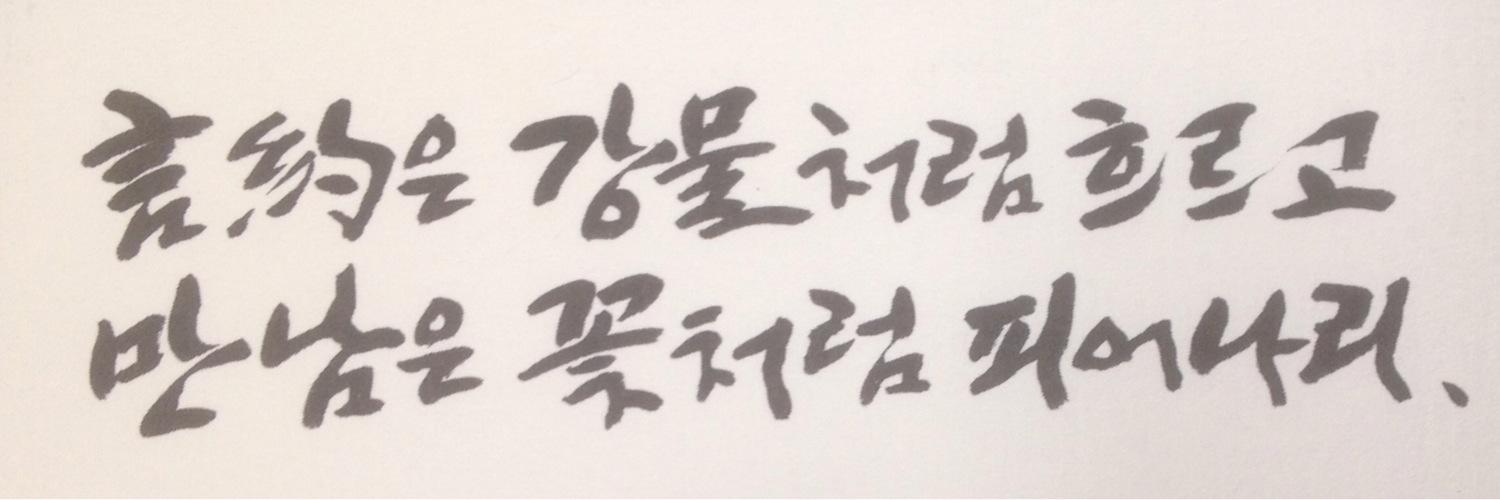 言約은 강물처럼 흐르고
만남은 꽃처럼 피어나리.